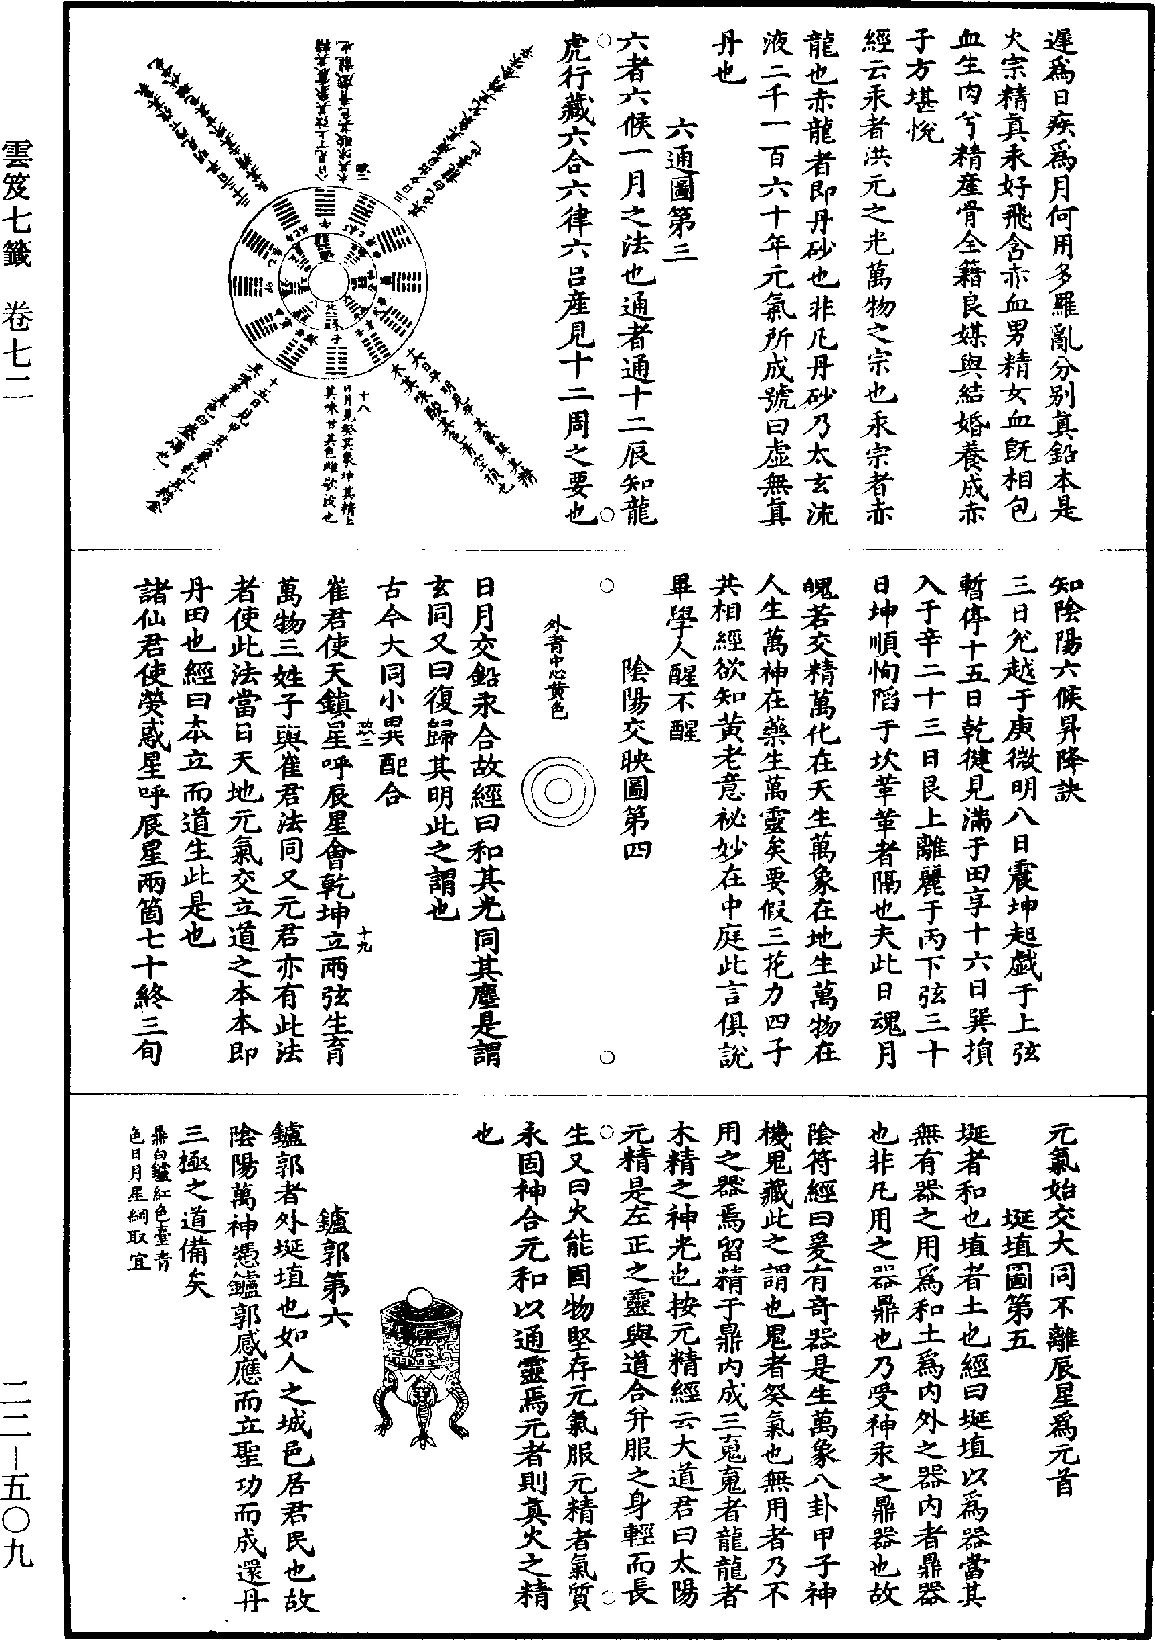 遲為日疾為月何用多羅亂分別真鉛本是
火宗精真汞好飛含赤血男精女血既相包
血生肉兮精產骨全藉良媒與結婚養成赤
子方堪悅
經云汞者洪元之光萬物之宗也汞宗者赤
龍也赤龍者即丹砂也非凡丹砂乃太玄流
液二千一百六十年元氣所成號曰虛無真
丹也
六通圖第三
六者六候一月之法也通者通十二辰知龍
虎行藏六合六律六呂産見十二周之要也
十八
知陰陽六候昇降訣
三日兊越于庚微明八日震坤起戲于上弦
暫停十五日乾健見滿于田享十六日巽損
入于辛二十三日艮上離麗于丙下弦三十
日坤順恂陷于坎革革者隔也夫此日魂月
魄若交精萬化在天生萬象在地生萬物在
人生萬神在藥生萬靈矣要假三花力四子
共相經欲知黃老意祕妙在中庭此言俱說
畢學人醒不醒
陰陽交映圖第四
外青中心黃色
日月交鉛汞合故經曰和其光同其塵是謂
玄同又曰復歸其明此之謂也
古今大同小異配合
十九
崔君使天鎮星呼辰星會乾坤立兩弦生育
萬物三姓子與崔君法同又元君亦有此法
者使此法當日天地元氣交立道之本本即
丹田也經曰本立而道生此是也
諸仙君使熒惑星呼辰星兩箇七十終三旬
元氣始交大同不離辰星為元首
埏埴圖第五
埏者和也埴者土也經曰埏埴以為器當其
無有器之用為和土為內外之器內者鼎器
也非凡用之器鼎也乃受神汞之鼎器也故
陰符經曰爰有奇器是生萬象八卦甲子神
機鬼藏此之謂也鬼者癸氣也無用者乃不
用之器焉留精于鼎內成三䰟䰟者龍龍者
木精之神光也按元精經云大道君曰太陽
元精是左正之靈與道合弁服之身輕而長
生又曰火能固物堅存元氣服元精者氣質
永固神合元和以通靈焉元者則真火之精
也
鑪郭第六
鑪郭者外埏埴也如人之城邑居君民也故
陰陽萬神憑鑪郭感應而立聖功而成還丹
三極之道備矣
鼎白鑪紅色臺青
色日月星綱取宜
雲笈七籤　卷七二
二二－五〇九